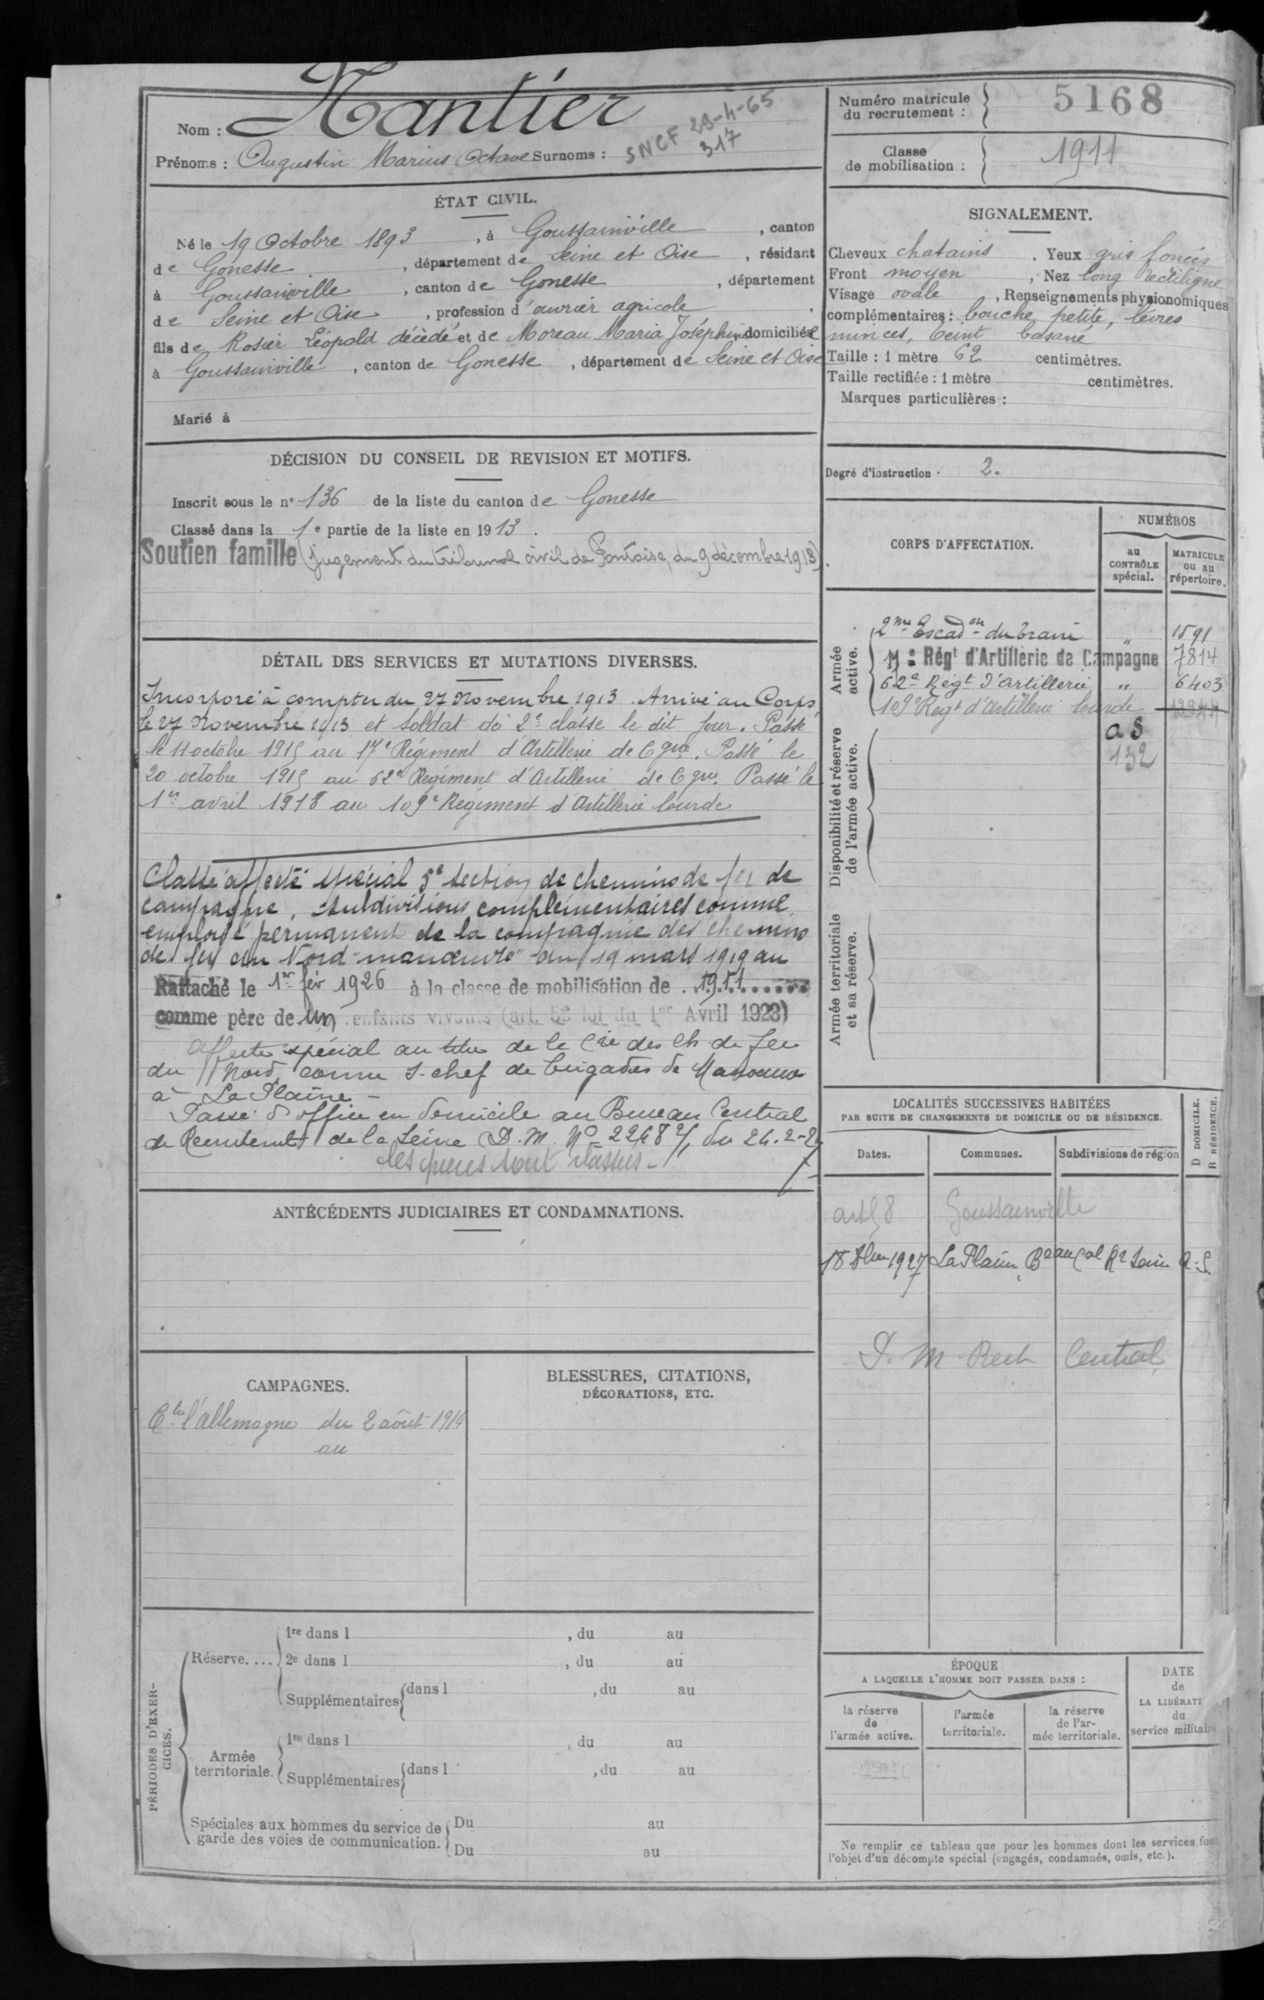 Nom : Nantier
Prénoms : Augustin Marius Octave Surnoms :
SNCF 29-4-65
317
Numéro matricule du recrutement : 5168
Classe de mobilisation : 1911
ÉTAT CIVIL.
Né le 19 Octobre 1893, à Goussainville, canton
de Gonesse, département de Seine et Oise, résidant
à Goussainville, canton de Gonesse, département
de Seine et Oise, profession d'ouvrier agricole
fils de Rosier Léopold décédé et de Moreau Maria Joséphine domiciliés
à Goussainville, canton de Gonesse, département de Seine et Oise
Marié à
SIGNALEMENT.
Cheveux chatains, Yeux gris foncés
Front moyen, Nez long rectiligne
Visage ovale, Renseignements physionomiques
complémentaires : bouche petite, lèvres
minces, teint basané
Taille : 1 mètre 62 centimètres.
Taille rectifiée : 1 mètre centimètres.
Marques particulières :
Degré d'instruction : 2.
DÉCISION DU CONSEIL DE REVISION ET MOTIFS.
Inscrit sous le n° 136 de la liste du canton de Gonesse
Classé dans la 1e partie de la liste en 1913.
Soutien famille (jugement du tribunal civil de Pontoise, du 9 décembre 1913).
CORPS D'AFFECTATION.
NUMÉROS
au CONTRÔLE spécial.
MATRICULE ou au répertoire.
Armée active.
2me Escadon du train " 1591
17e Régt d'Artillerie de Campagne 7814
62e Régt d'artillerie " 6403
109e Regt d'artillerie lourde
aS
132
Disponibilité et réserve de l'armée active.
Armée territoriale et sa réserve.
DÉTAIL DES SERVICES ET MUTATIONS DIVERSES.
Incorporé à compter du 27 Novembre 1913. Arrivé au Corps
le 27 Novembre 1913 et soldat de 2e classe le dit jour. Passé
le 11 octobre 1915 au 17e Régiment d'Artillerie de Cgne. Passé le
20 octobre 1915 au 62e Régiment d'Artillerie de Cgne. Passé le
1er avril 1918 au 109e Régiment d'Artillerie lourde
Classé affecté spécial 5e section de chemins de fer de
campagne, subdivisions complémentaires comme
employé permanent de la compagnie des chemins
de fer du Nord "manœuvre" du 19 mars 1919 au
Rattaché le 1er fév 1926 à la classe de mobilisation de 1911
comme père de un enfants vivants (art. 58 loi du 1er Avril 1923)
Affecté spécial au titre de la Cie des Ch de fer
du Nord comme S-chef de brigades de Manœuvre
à La Plaine -
Passé d'office en domicile au Bureau Central
de Recrutement de la Seine D.M. No 2268 2/1 du 24-2-2
les pièces sont classées -
ANTÉCÉDENTS JUDICIAIRES ET CONDAMNATIONS.
LOCALITÉS SUCCESSIVES HABITÉES
PAR SUITE DE CHANGEMENTS DE DOMICILE OU DE RÉSIDENCE.
Dates. Communes. Subdivisions de région
D DOMICILE. R RÉSIDENCE.
art 58 Goussainville
1927 La Plaine
D. M Rect Central
CAMPAGNES.
Ctre l'allemagne du 2 août 1914
au
BLESSURES, CITATIONS, DÉCORATIONS, ETC.
PÉRIODES D'EXERCICES.
Réserve.... 1re dans l , du au
2e dans l , du au
Supplémentaires dans l , du au
Armée territoriale. 1re dans l , du au
Supplémentaires dans l , du au
Spéciales aux hommes du service de garde des voies de communication. Du au
Du au
ÉPOQUE
A LAQUELLE L'HOMME DOIT PASSER DANS :
la réserve de l'armée active.
l'armée territoriale.
la réserve de l'armée territoriale.
DATE de LA LIBÉRATI du service militaire
Ne remplir ce tableau que pour les hommes dont les services font
l'objet d'un décompte spécial (engagés, condamnés, omis, etc.).